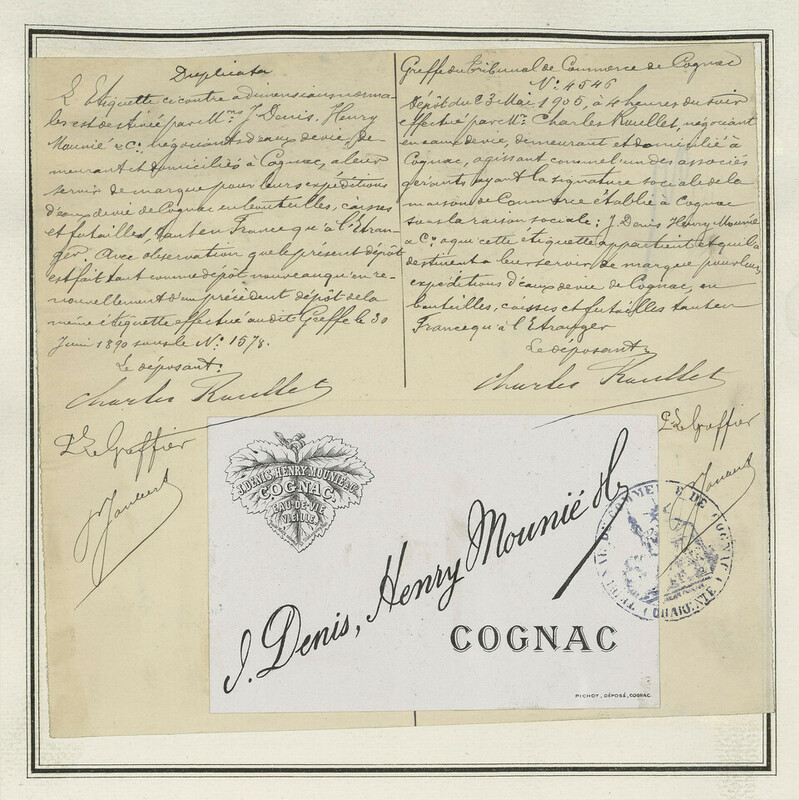 Duplicata
L'Etiquette ci contre a dimensions norma-
les est destinée par Mrs J. Denis, Henry
Mounié & Co. négociants d'eaux de vie, de
meurant et domiciliés à Cognac, a leur
servir de marque pour leurs expéditions
d'eaux de vie de Cognac en bouteilles, caisses
et futailles, tant en France qu'à l'Etran-
ger. Avec observation que le présent dépôt
est fait tant comme dépôt nouveau qu'en re-
nouvellement d'un précédent dépôt de la
même étiquette effectué au dit Greffe le 30
Juin 1890 sous le No. 1578.
Le déposant:
Charles Roullet
Le Greffier
Greffe du Tribunal de Commerce de Cognac
No. 4546
Dépôt du 23 Mai 1905, à 4 heures du soir
effectué par Mr. Charles Roullet, négociant
en eaux de vie, demeurant et domicilié à
Cognac, agissant comme l'un des associés
gérants ayant la signature sociale de la
maison de Commerce établie à Cognac
sous la raison sociale: J. Denis Henry Mounié
& Co. a qui cette étiquette appartient et qu'ils
destinent a leur servir de marque pour leurs
expéditions d'eaux de vie de Cognac, en
bouteilles, caisses et futailles tant en
France qu'à l'Etranger
Le déposant
Charles Roullet
Le Greffier
J. DENIS, HENRY MOUNIÉ & Co.
COGNAC.
EAU-DE-VIE
VIEILLE.
J. Denis, Henry Mounié
COGNAC
PICHOT, DÉPOSÉ, COGNAC.
TRIBUNAL DE COMMERCE DE COGNAC (CHARENTE)